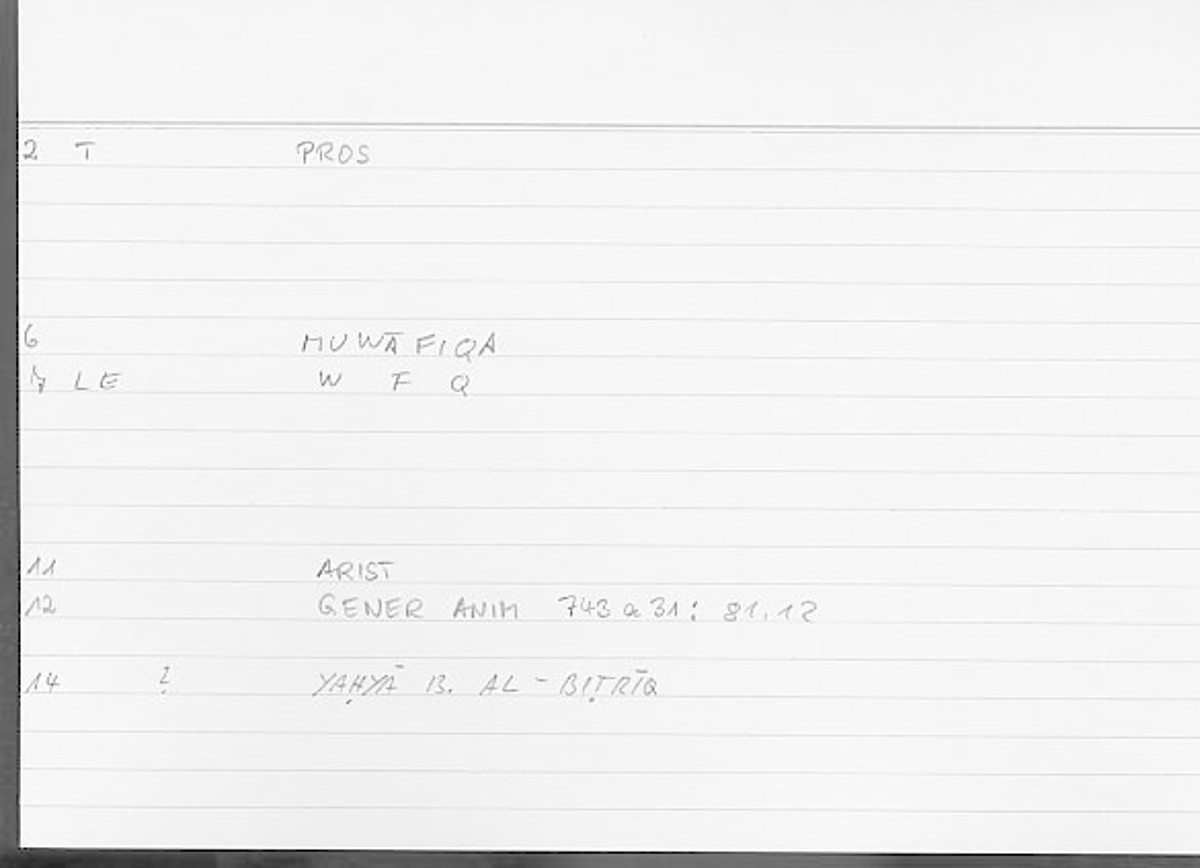 2 T PROS
6 MUWĀFIQA
7 LE W F Q
11 ARIST
12 GENER ANIM 743 a 31 : 81.12
14 ? YAḤYĀ B. AL-BIṬRĪQ